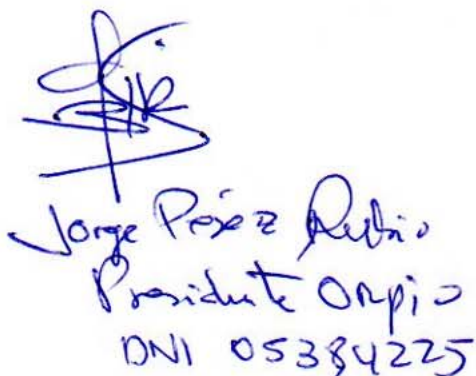 Jorge Pérez Rubio
Presidente Orpio
DNI 05384225